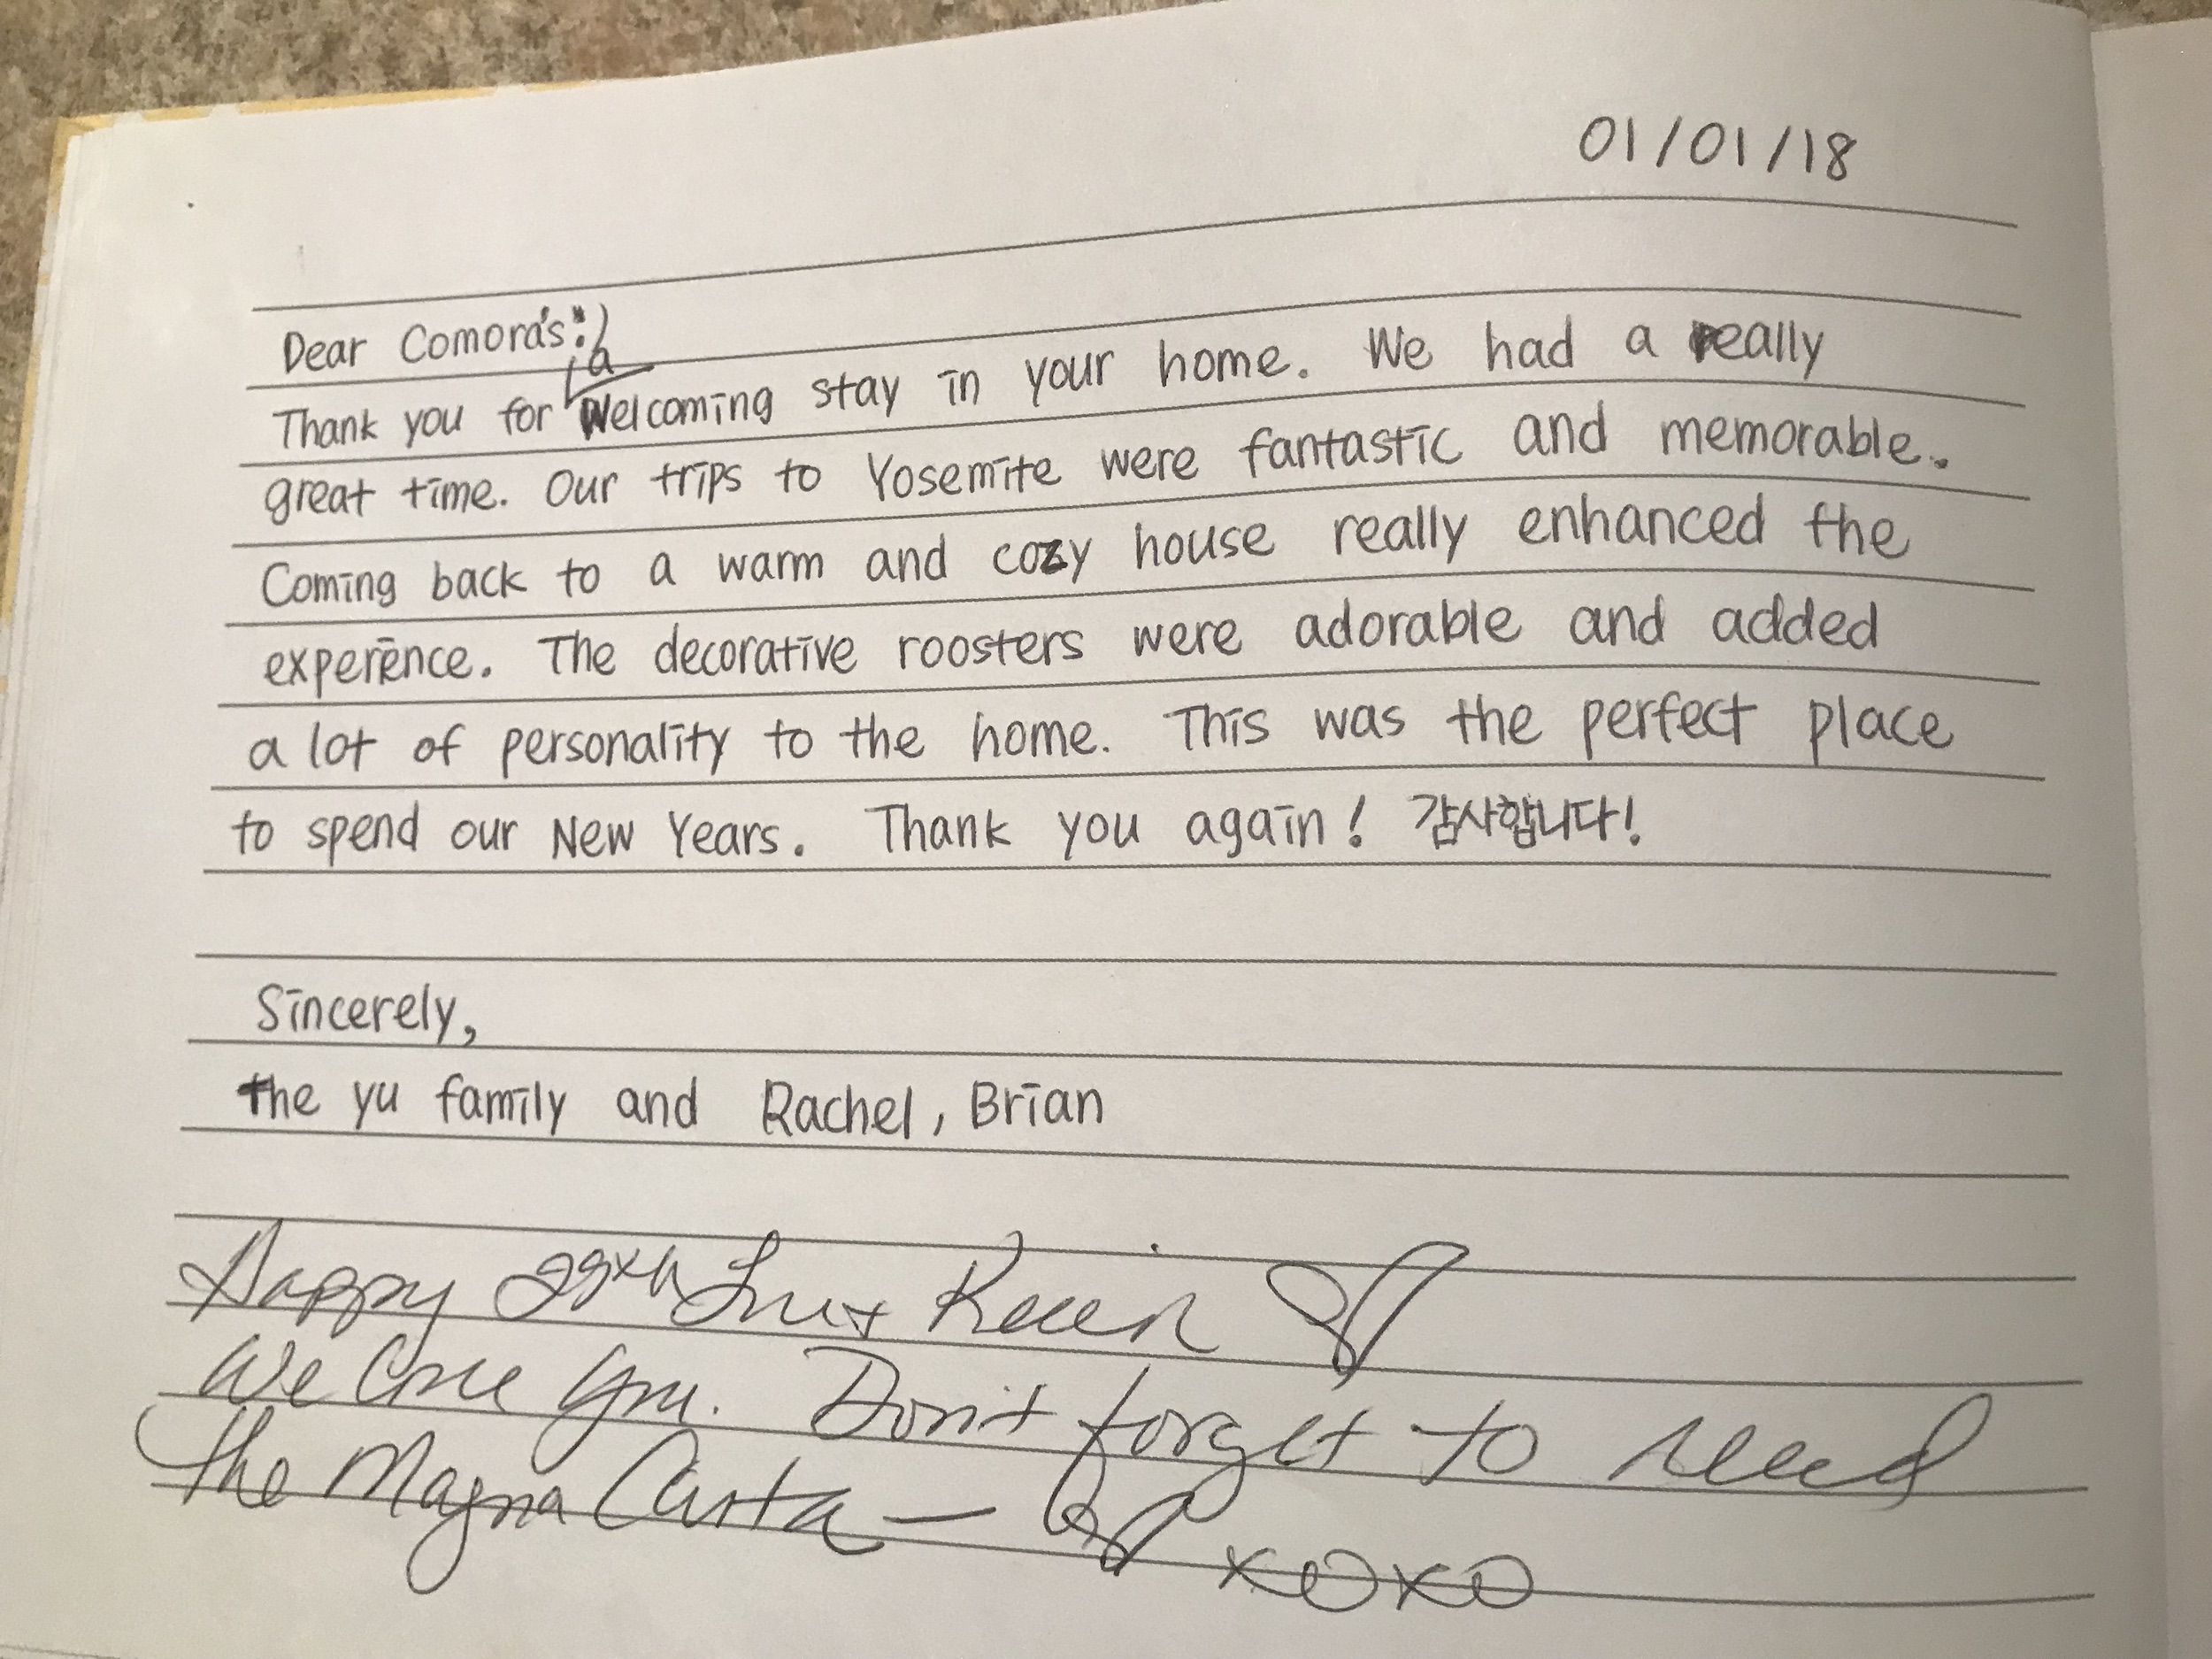 01/01/18
Dear Comora's:)
Thank you for a Welcoming stay in your home. We had a really
great time. Our trips to Yosemite were fantastic and memorable.
Coming back to a warm and cozy house really enhanced the
experience. The decorative roosters were adorable and added
a lot of personality to the home. This was the perfect place
to spend our New Years. Thank you again! 감사합니다!
Sincerely,
the yu family and Rachel, Brian
Happy
We love you. Don't forget to read
the Magna Carta — xoxo